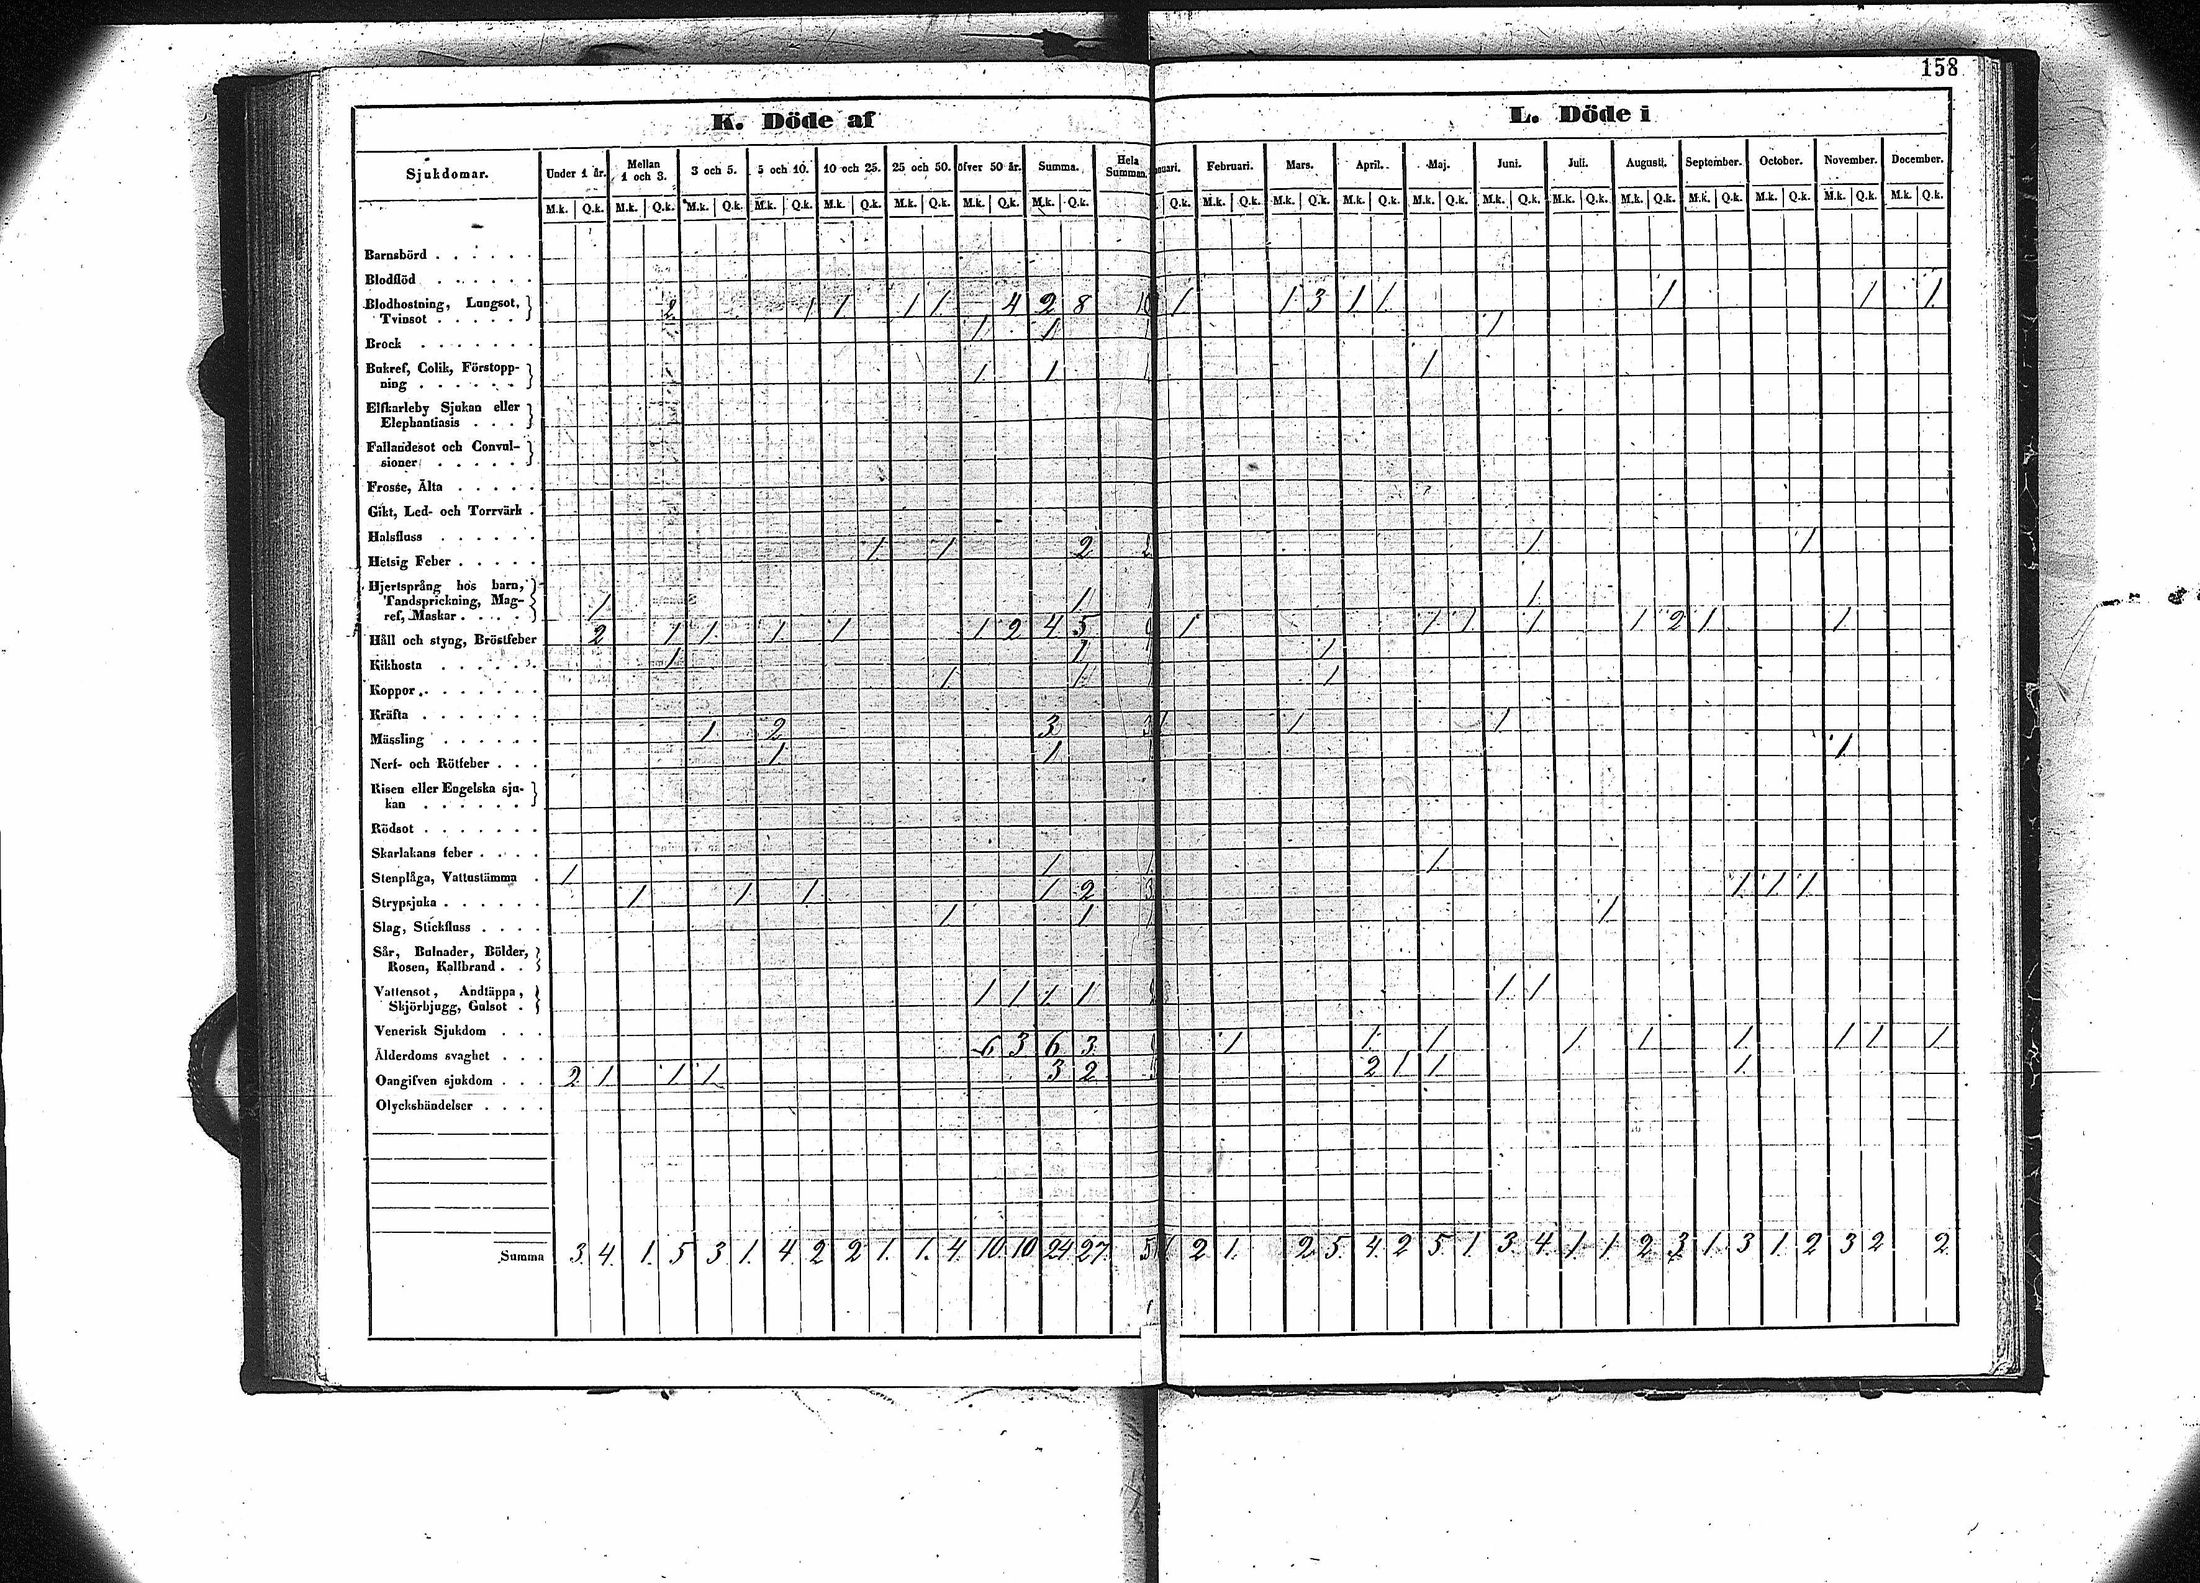 158
K. Döde af
L. Döde i
Sjukdomar. Under 1 år. Mellan 1 och 3. 3 och 5. 5 och 10. 10 och 25. 25 och 50. öfver 50 år. Summa. Hela Summan. nuari. Februari. Mars. April. Maj. Juni. Juli. Augusti. September. October. November. December.
M.k. Q.k. M.k. Q.k. M.k. Q.k. M.k. Q.k. M.k. Q.k. M.k. Q.k. M.k. Q.k. M.k. Q.k. Q.k. M.k. Q.k. M.k. Q.k. M.k. Q.k. M.k. Q.k. M.k. Q.k. M.k. Q.k. M.k. Q.k. M.k. Q.k. M.k. Q.k. M.k. Q.k. M.k. Q.k.
Barnsbörd
Blodflöd
Blodhostning, Lungsot,
Tvinsot 2 1 1 1 1 4 2 8 10 1 1 3 1 1 1 1 1
Brock 1 1 1 1
Bukref, Colik, Förstopp-
ning 1 1 1 1
Elfkarleby Sjukan eller
Elephantiasis
Fallandesot och Convul-
sioner
Frosse, Älta
Gikt, Led- och Torrvärk
Halsfluss
Hetsig Feber 1 1 2 2 1 1
Hjertsprång hos barn,
Tandsprickning, Mag-
ref, Maskar 1 1 1 1
Håll och styng, Bröstfeber 2 1 1 1 1 1 2 4 5 9 1 1 1 1 1 2 1 1
Kikhosta 1 1 1 1
Koppor 1 1 1
Kräfta
Mässling 1 2 3 3 1 1 1
Nerf- och Rötfeber 1 1 1 1
Risen eller Engelska sju-
kan
Rödsot
Skarlakans feber
Stenplåga, Vattustämma 1 1 1 1
Strypsjuka 1 1 1 1 2 3 1 1 1
Slag, Stickfluss 1 1 1 1
Sår, Bulnader, Bölder,
Rosen, Kallbrand
Vattensot, Andtäppa,
Skjörbjugg, Gulsot 1 1 1 1 1 1
Venerisk Sjukdom
Ålderdoms svaghet 6 3 6 3 1 1 1 1 1 1 1 1 1
Oangifven sjukdom 2 1 1 1 3 2 2 1 1 1
Olyckshändelser
Summa 3 4 1 5 3 1 4 2 2 1 1 4 10 10 24 27 5 1 2 1 2 5 4 2 5 1 3 4 1 1 2 3 1 3 1 2 3 2 2